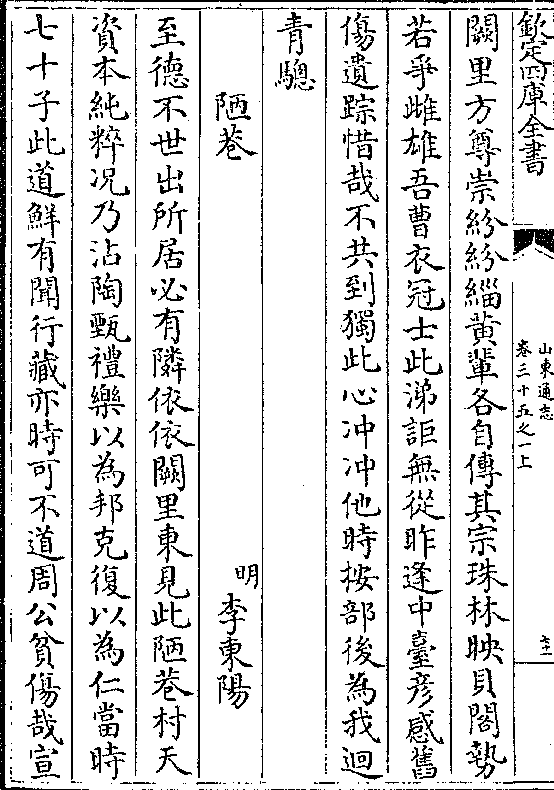 欽定四庫全書
山東通志
卷三十五之一上
闕里方尊崇紛紛緇黃輩各自傳其宗珠林映貝閣勢
若爭雌雄吾曹衣冠士此涕詎無從昨逢中臺彦感舊
傷遺踪惜哉不共到獨此心冲冲他時按部後為我迴
青驄
陋巷
明 李東陽
至德不世出所居必有隣依依闕里東見此陋巷村天
資本純粹况乃沾陶甄禮樂以為邦克復以為仁當時
七十子此道鮮有聞行藏亦時可不道周公貧傷哉宣